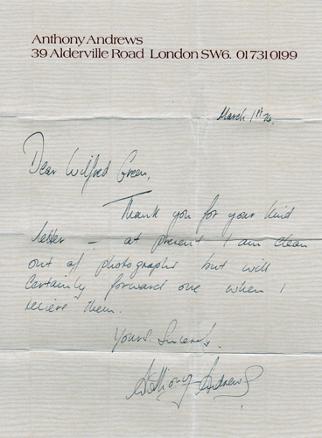 Anthony Andrews
39 Alderville Road London SW6. 01 731 0199
March 1st
Dear Wilfred Green,
Thank you for your kind
letter – at present I am clean
out of photographs but will
certainly forward one when I
recieve them.
Yours Sincerely,
Anthony Andrews